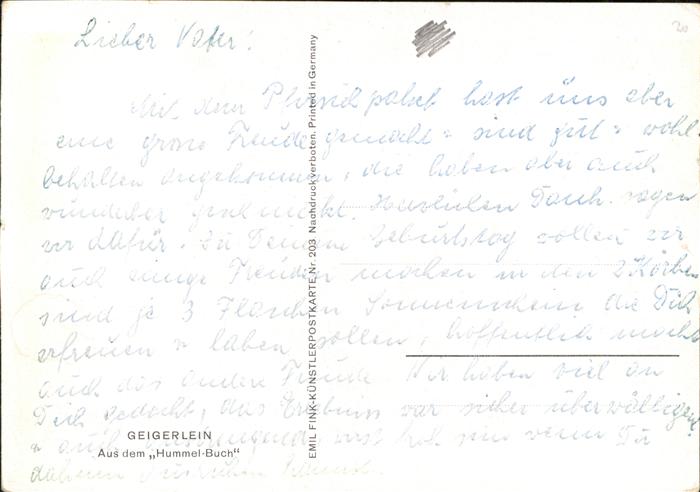 Lieber Vater!
Mit dem Pfirsichpaket hast üns aber
eine grosse Freude gemacht = sind gut = wohl
behalten angekommen, die haben aber auch
wunderbar geschmeckt. Herzlichen Dank sagen
wir dafür. Zu Deinem Geburtstag wollen wir
auch einige Freuden machen in den 2 Körben
sind je 3 Flaschen Sonnenschein die Dich
erfreuen = laben sollen, hoffentlich macht
auch das andere Freude. Wir haben viel an
Dich gedacht, das Erlebnis war sicher überwältigend
= auch anstrengend, wirst froh sein wenn Du
daheim ausruhen
GEIGERLEIN
Aus dem „Hummel-Buch"
EMIL FINK-KÜNSTLERPOSTKARTE Nr. 203. Nachdruck verboten. Printed in Germany
20